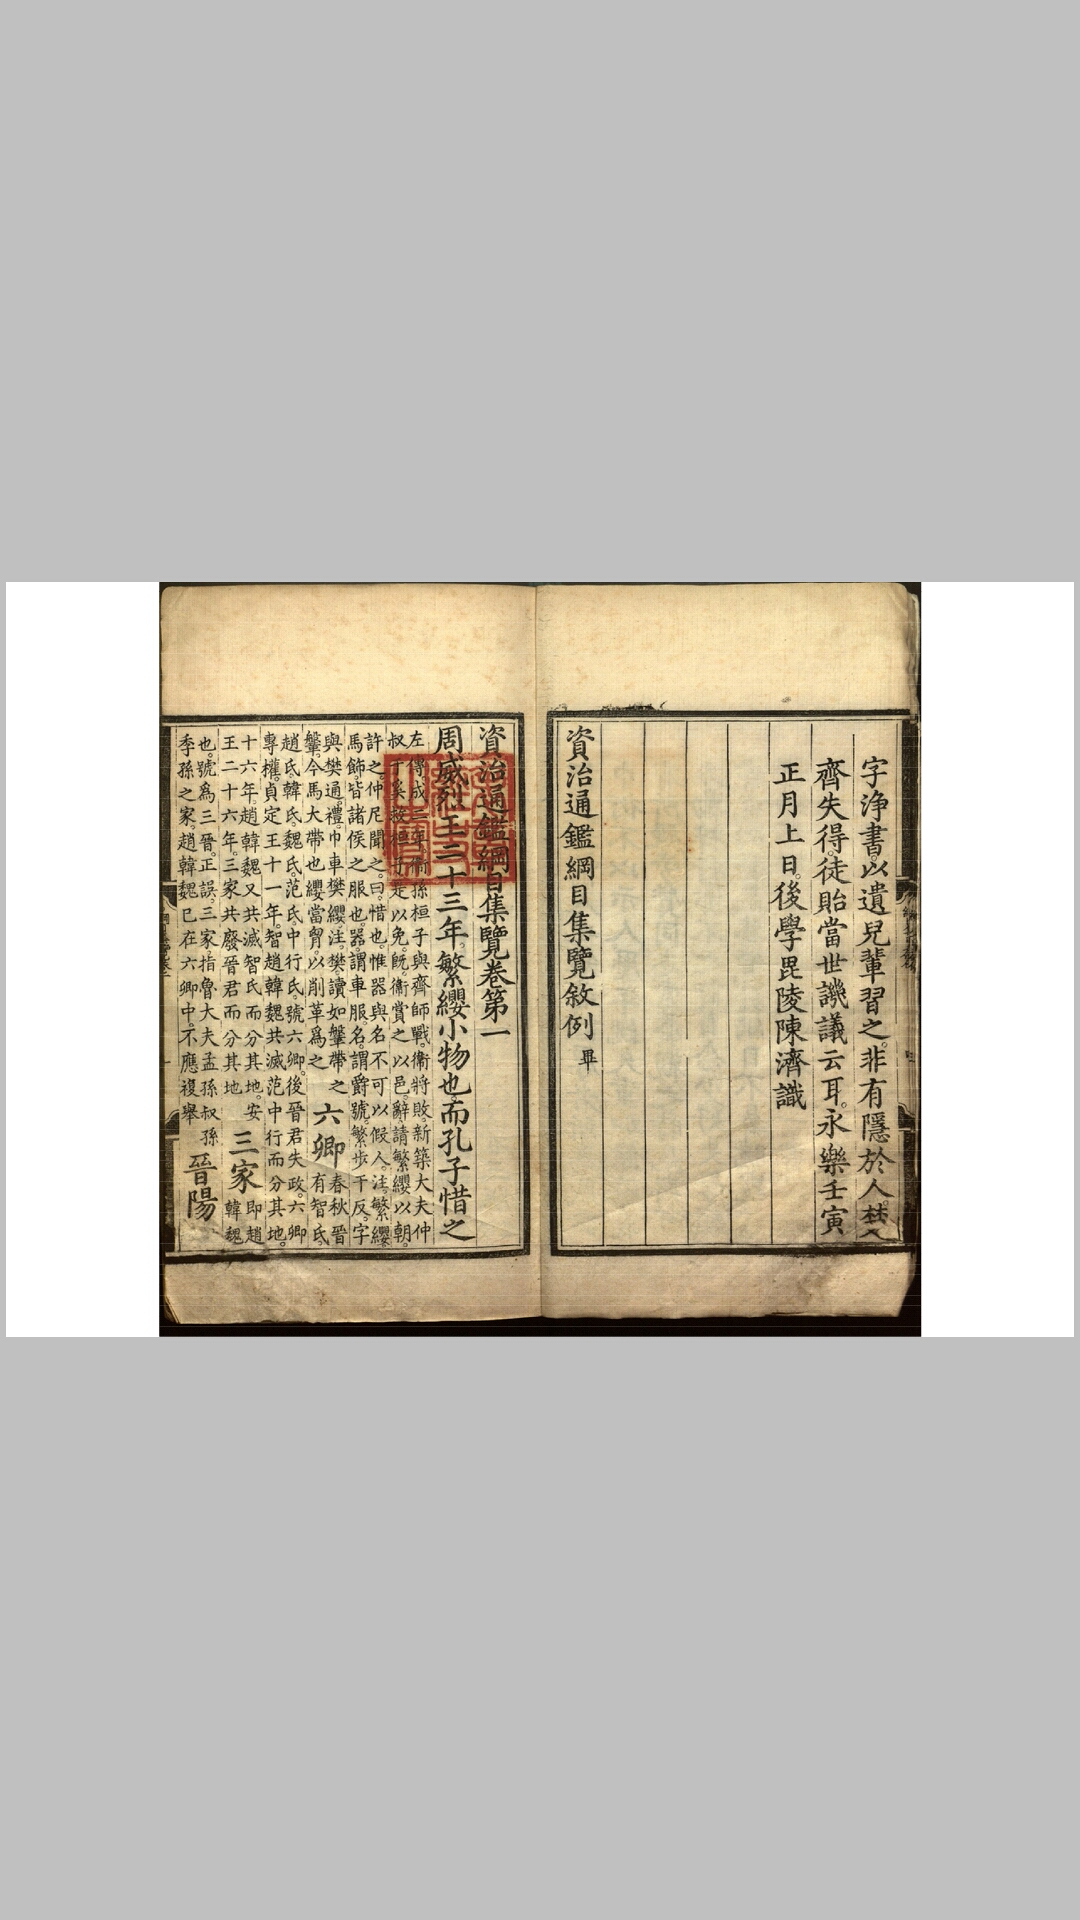 字淨書。以遺兒輩習之。非有隱於人。
齊失得。徒貽當世譏議云耳。永樂壬寅
正月上日。後學毘陵陳濟識
資治通鑑綱目集覽敘例 畢
資治通鑑綱目集覽卷第一
周威烈王二十三年。繁纓小物也。而孔子惜之
左傳。成二年。衞孫桓子與齊師戰。衞將敗。新築大夫仲
叔于奚救桓子。是以免。旣。衞賞之以邑。辭。請繁纓以朝。
許之。仲尼聞之。曰。惜也。惟器與名不可以假人。注。繁纓。
馬飾。皆諸侯之服也。器。謂車服。名。謂爵號。繁。步干反。字
與樊通。禮。巾車樊纓。注。樊。讀如鞶帶之
鞶。今馬大帶也。纓當胷。以削革爲之
六卿
春秋晉
有智氏。
趙氏。韓氏。魏氏。范氏。中行氏。號六卿。後晉君失政。六卿
專權。貞定王十一年。智趙韓魏共滅范中行而分其地。
十六年。趙韓魏又共滅智氏而分其地。安
王二十六年。三家共廢晉君而分其地
三家
卽趙
韓魏
也。號爲三晉。正誤。三家。指魯大夫孟孫叔孫
季孫之家。趙韓魏已在六卿中。不應複舉
晉陽